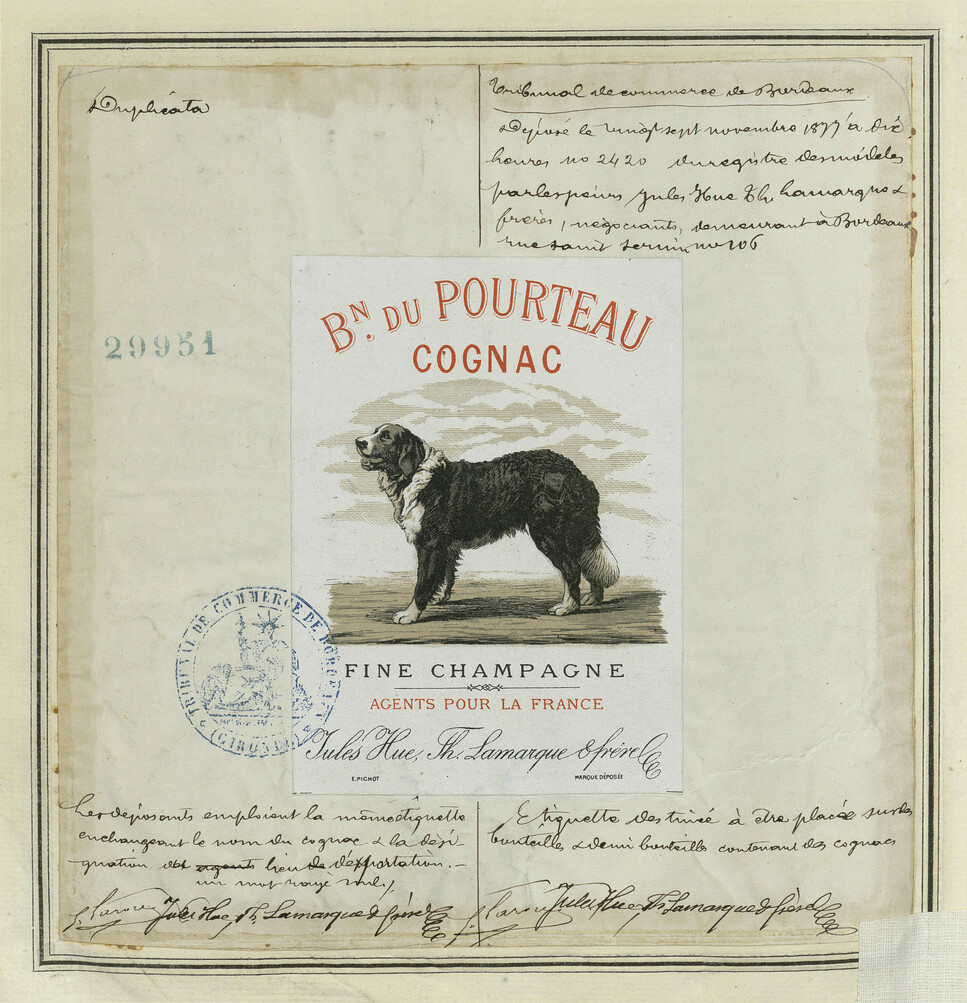 Duplicata
Tribunal de commerce de Bordeaux
Déposé le vingt sept novembre 1877 à dix
heures no 2420 du registre des modèles
par les sieurs Jules Hue Th. Lamarque &
frères, négociants, demeurant à Bordeaux
rue saint sernin no 106
29951
BN. DU POURTEAU
COGNAC
TRIBUNAL DE COMMERCE DE BORDEAUX
(GIRONDE)
FINE CHAMPAGNE
AGENTS POUR LA FRANCE
Jules Hue, Th. Lamarque & frère
E.PICHOT
MARQUE DÉPOSÉE
Les déposants emploient la même étiquette
en changeant le nom du cognac & la dési-
gnation agents lieu d'exportation.-
un mot rayé nul,
Jules Hue, Th. Lamarque & frère
Etiquette destinée à être placée sur les
bouteilles & demi bouteilles contenant des cognacs
Jules Hue Th Lamarque & frère